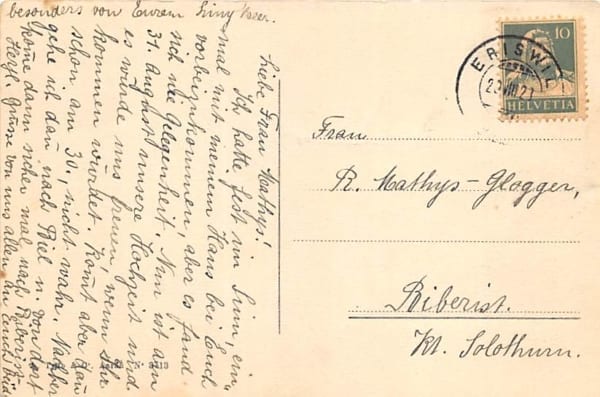 Liebe Frau Mathys!
Ich hatte fest im Sinn, ein-
mal mit meinem Hans bei Euch
vorbeizukommen, aber es fand
sich nie Gelegenheit. Nun ist am
31. August unsere Hochzeit und
es würde uns freuen, wenn Ihr
kommen würdet. Kommt aber dann
schon am 30., nicht wahr. Nachher
gehe ich dann nach Biel u. von dort
komme dann sicher mal nach Biberist.
Herzl. Grüsse von uns allen an Euch
besonders von Eurem
HELVETIA
10
ERISWIL
Frau
R. Mathys-Glogger,
Biberist.
Kt. Solothurn.